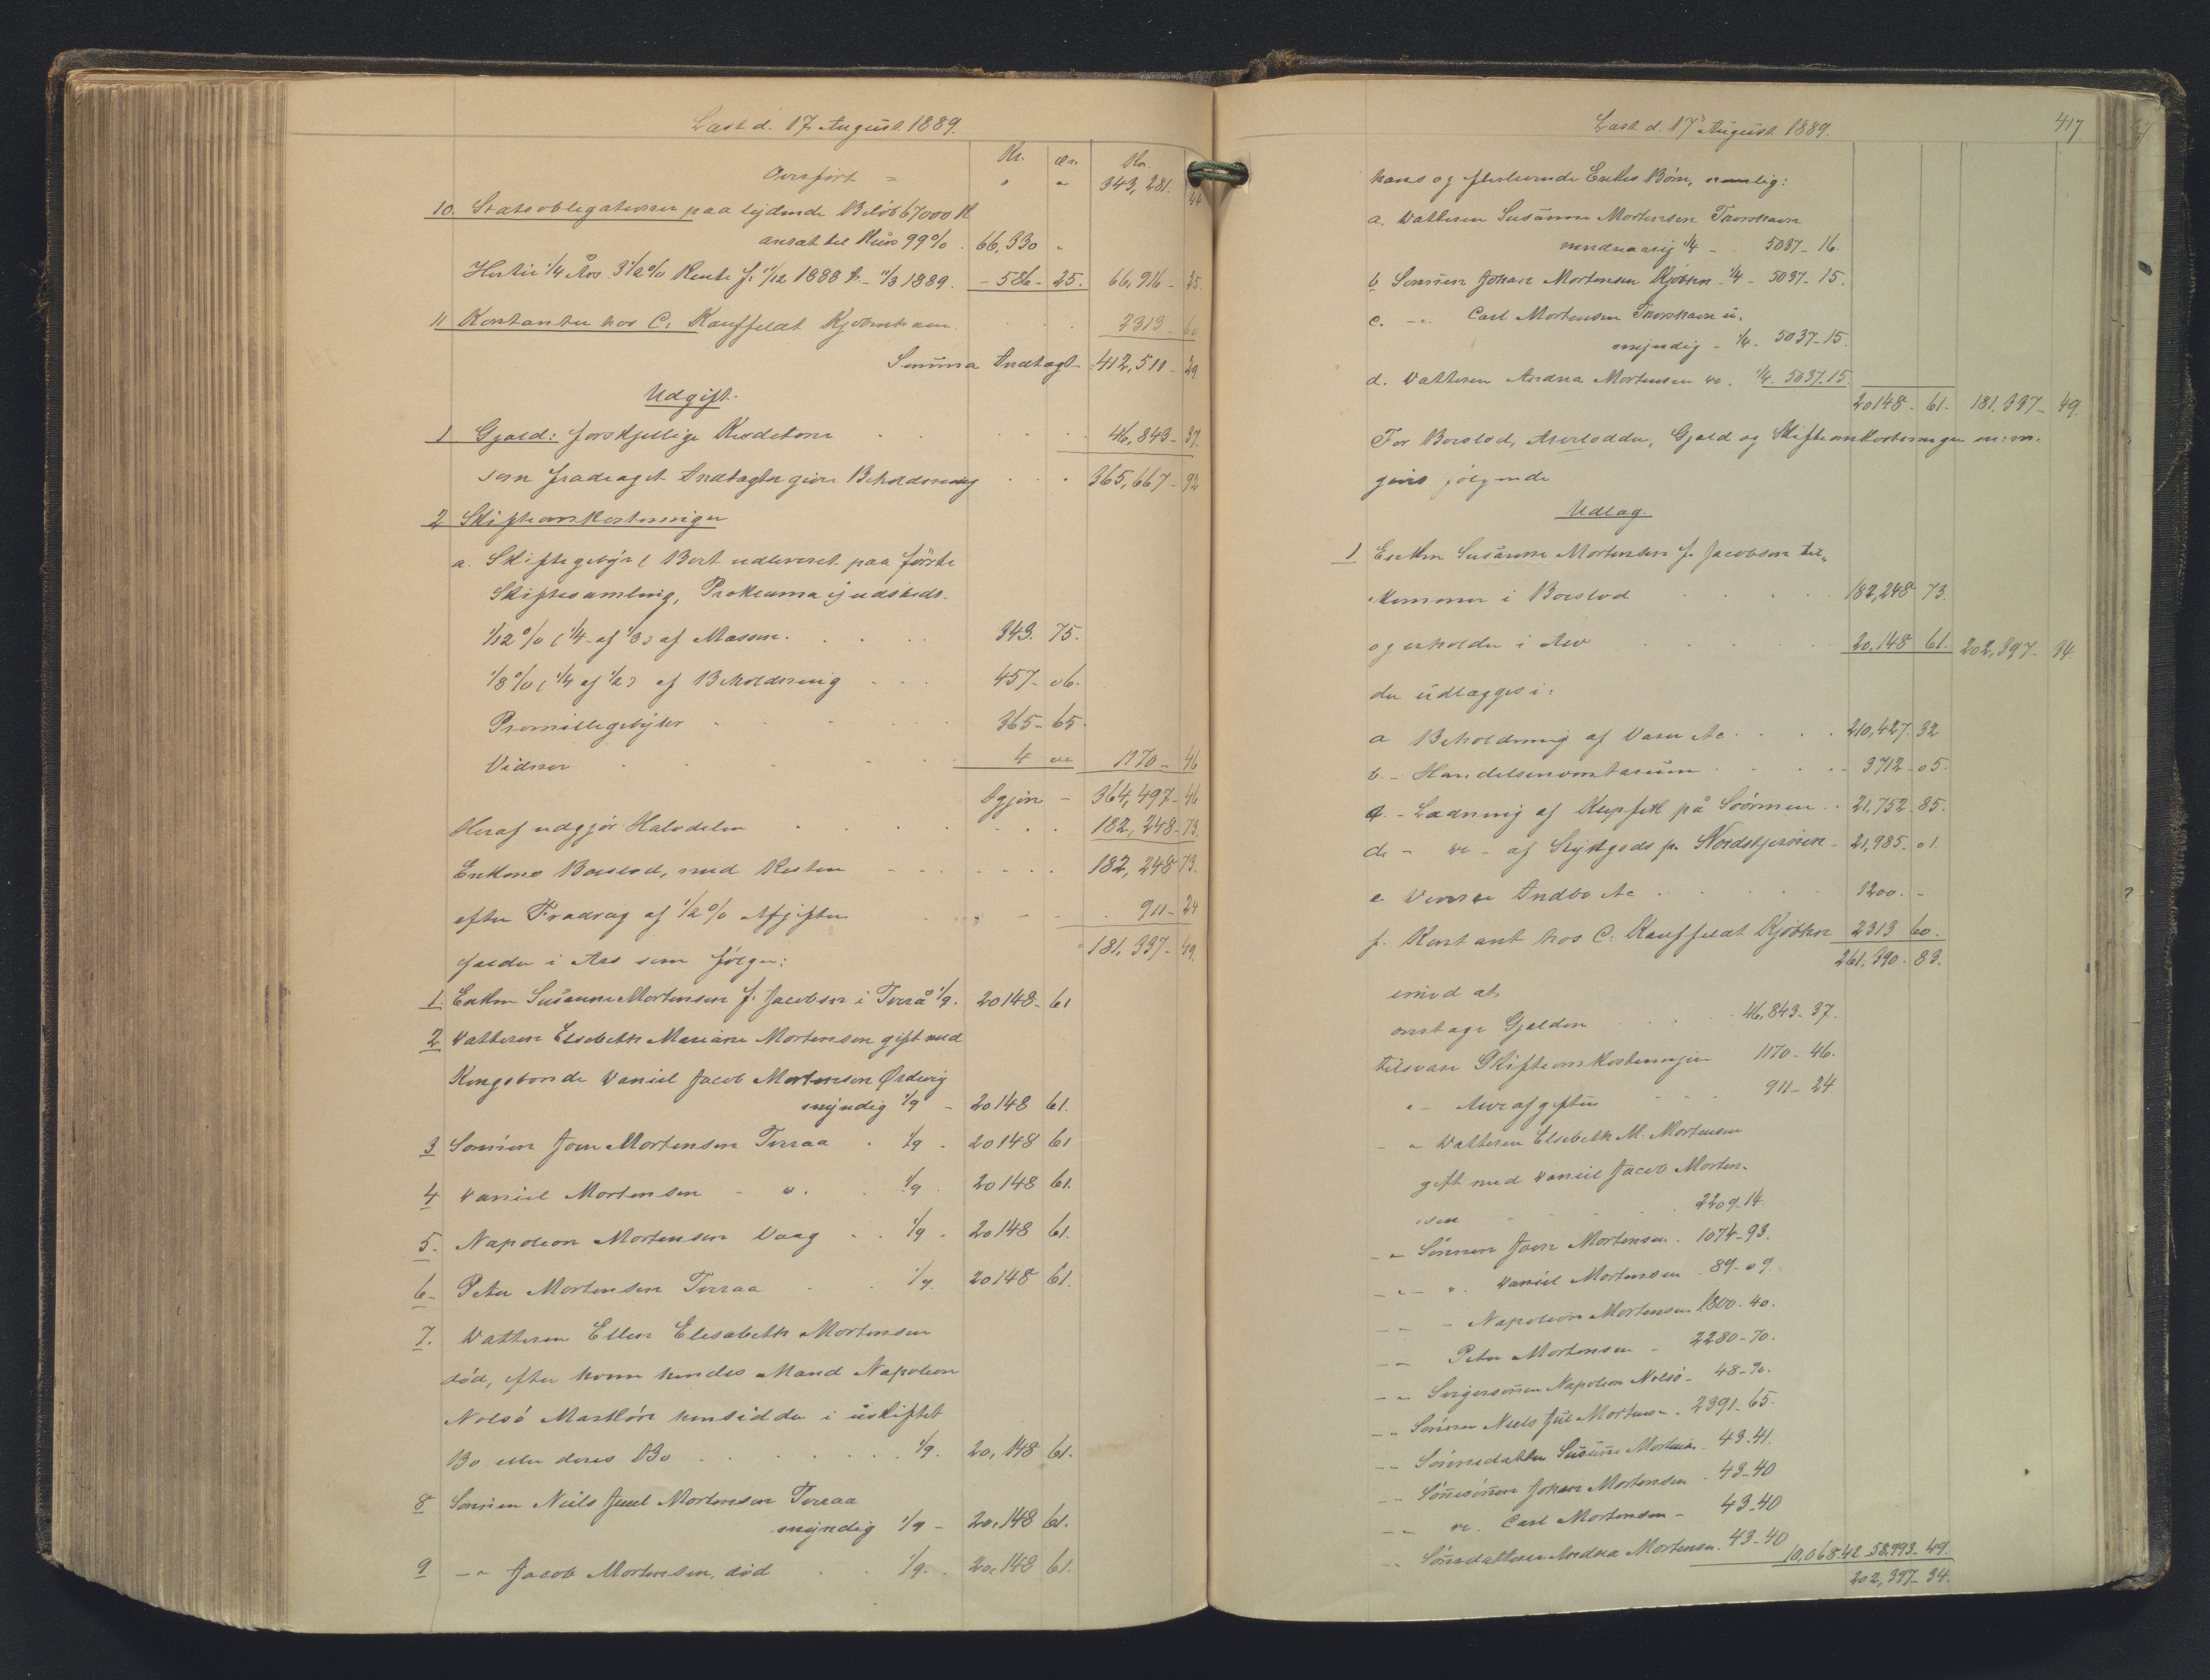 Læst d. 17 August 1889.
Kr. Ør. Kr.
Overført = " " 343,281. 44
10. Statsobligationer paa lydende Beløb 67000 K
ansat til Kurs 99% . 66,330 "
Hertil 1/4 Års 3 1/2% Rente f. 11/12 1888 t. 11/3 1889. - 586 - 25. 66,916 - 25.
11 Kontanter hos C. Kauffeldt Kjøbenhavn . . . 2313 - 60
Summa Indtægt - 412,511 - 29
Udgift.
1 Gjæld: forskjellige Kreditorer . . . 46,843 - 37.
som fradraget Indtægten giver Beholdning . . . 365,667 - 92
2 Skifteomkostninger
a. Skiftegebyr ( Boet udleveret paa første
Skiftesamling, Proklama ej udstedt.
1/12% ( 1/4 af 1/3 ) af Massen. . . . 343. 75.
1/8% ( 1/4 af 1/2 ) af Beholdning - - . 457 - 06.
Promillegebyhr . . . 365 - 65.
Vidner . . . 4 " 1170 - 46
Igjen - 364,497 - 46
Heraf udgjør Halvdelen . . . 182,248 - 73.
Enkens Boeslod, med Resten - - - . . . 182,248 73.
efter Fradrag af 1/2% Afgiften . - - . 911 - 24
181,337 - 49.
falder i Arv som følger:
1. Enken Susanne Mortensen f. Jacobsen i Tverå 1/9. 20148 - 61
2 Datteren Elsebeth Mariane Mortensen gift med
Kongsbonde Daniel Jacob Mortensen Ørdevig
myndig 1/9 - 20148 61.
3 Sønnen Joen Mortensen Tveraa . 1/9 - 20148 61
4 Daniel Mortensen - " . . 1/9 . 20148 61.
5. Napoleon Mortensen Vaag . . 1/9 . 20148 61.
6 - Peter Mortensen Tveraa . . 1/9. 20148 61.
7. Datteren Ellen Elisabeth Mortensen
død, efter hvem hendes Mand Napoleon
Nolsø hensidder i uskiftet
Bo eller deres Bo . . . 1/9. 20,148 61.
8 Sønnen Niels Juul Mortensen Tveraa
myndig 1/9 - 20,148 61.
9 - " Jacob Mortensen, død . . 1/9. . 20,148 61.
Læst d. 17 August 1889. 417
hans og efterlevende Enkes Børn, nemlig:
a. Datteren Susanne Mortensen Thorshavn
mindreaarig 1/4 - 5037 - 16.
b Sønnen Johan Mortensen Kjøbhn 1/4 - 5037 - 15.
c. - " . Carl Mortensen Thorshavn u.
myndig - 1/4 . 5037 - 15.
d. Datteren Andrea Mortensen do. 1/4. 5037 - 15.
20148 - 61. 181,337 - 49.
For Boeslod, Arvelodder, Gjæld og Skifteomkostninger m: m.
gives følgende
Udlag.
1 Enken Susanne Mortensen f. Jacobsen til-
kommer i Boeslod . . . 182,248 73.
og erholder i Arv . . . 20,148 61. 202,397 - 34.
der udlægges i:
a Beholdning af Varer &c . . . 210,427. 32
b. - Handelsinventarium . . . 3712 - 05.
c. - Ladning af Klipfisk på . . 21,752 - 85.
d - do - af Stykgods pr. Nordstjernen - 21,985. 01.
e Diverse Indbo &c . . . 1200. -
f. Kontant hos C: Kauffeldt Kjøbhn 2313 60.
261,390. 83.
imod at
overtage Gjælden . . . 46,843 - 37.
tilsvare Skifteomkostningen 1170 - 46.
" - Arveafgiften - - - 911 - 24
- " Datteren Elsebeth M. Mortensen
gift med Daniel Jacob Morten-
sen . . . 2209 - 14.
- " Sønnen Joen Mortensen . 1074 - 93.
- " - " . Daniel Mortensen . 89 - 09.
- " - Napoleon Mortensen 1800 - 40.
- " Peter Mortensen - 2280 - 70.
- " Svigersønnen Napoleon Nolsø - 48 - 90.
- " Sønnen Niels Jul Mortensen . 2391 - 65.
- " Sønnedatter Susanne Mortensen . 43 - 41.
- " Sønnesønnen Johan Mortensen . 43 - 40
- " do. Carl Mortensen - 43 - 40
- " Sønnedatteren Andrea Mortensen . 43 - 40 10,068.42 58,993 - 49.
202,397 - 34.